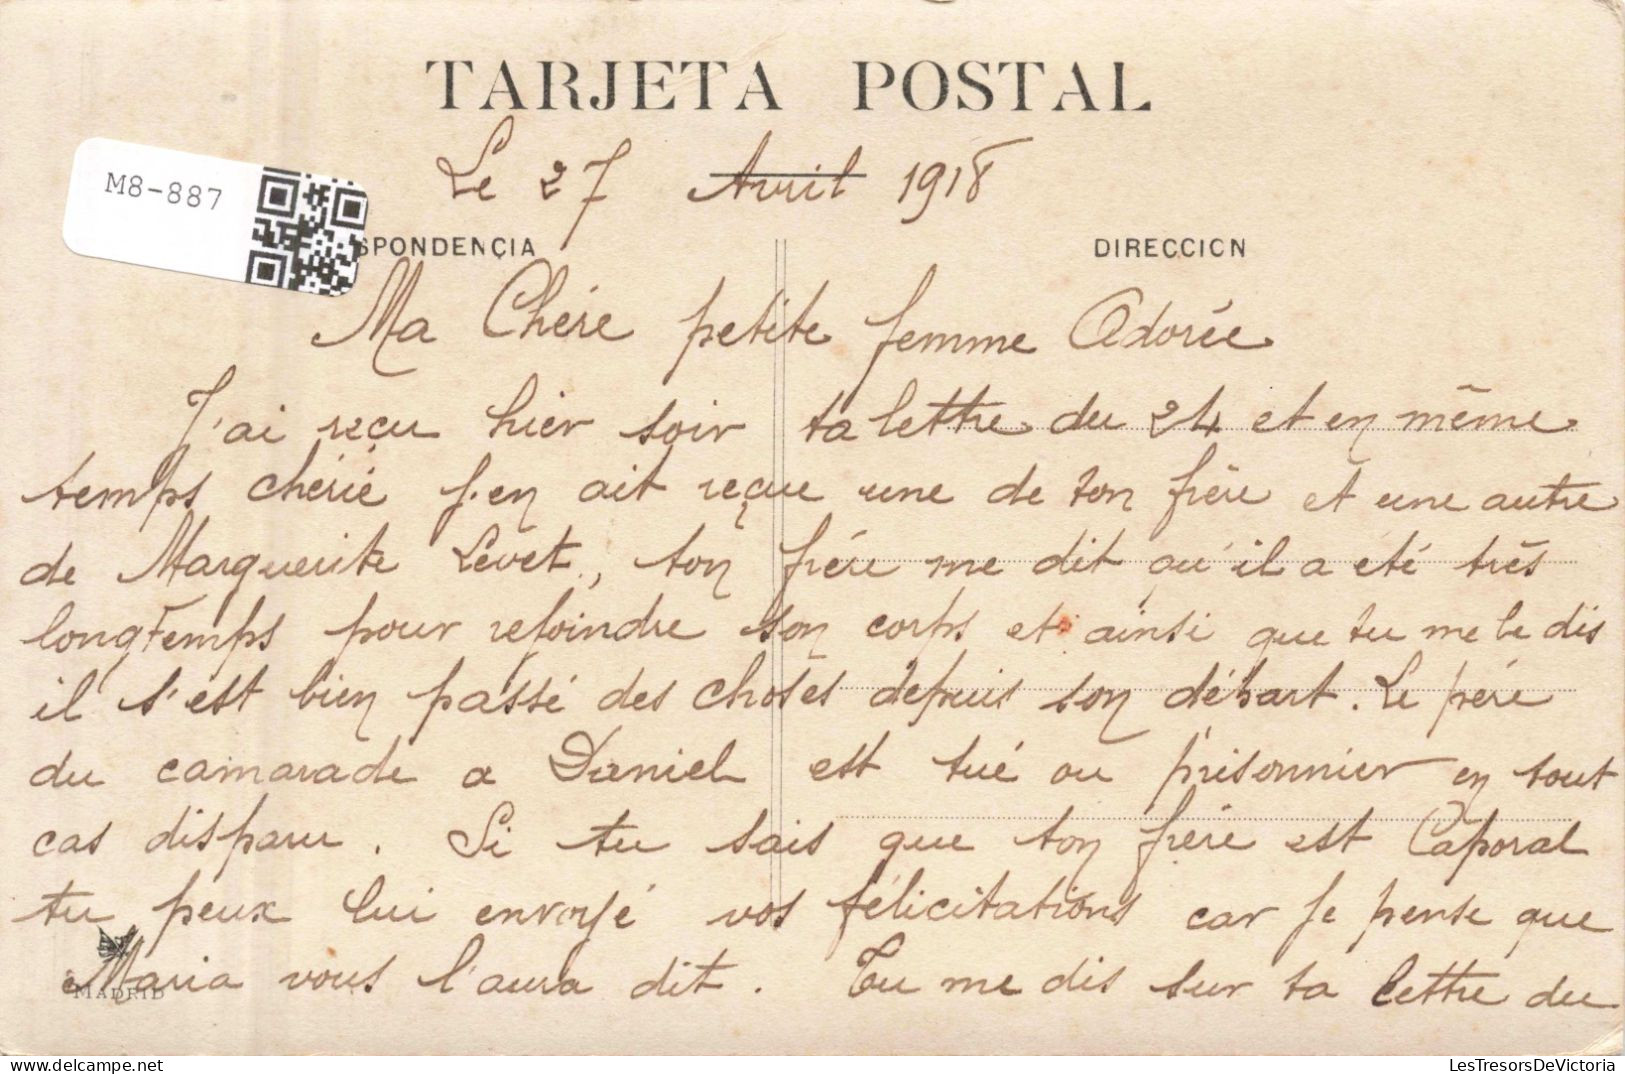 TARJETA POSTAL
Le 27 Avril 1918
M8-887
SPONDENCIA
DIRECCION
Ma Chére petite femme Adorée
J'ai reçu hier soir ta lettre du 24 et en même
temps chérie j'en ait reçue une de ton frère et une autre
de Marguerite Levet, ton frére me dit qu'il a été très
longtemps pour rejoindre son corps et ainsi que tu me le dis
il s'est bien passé des choses depuis son départ. Le père
du camarade a Daniel est tué ou prisonnier en tout
cas disparu. Si tu sais que ton frère est Caporal
tu peux lui envoyé vos félicitations car je pense que
Maria vous l'aura dit. Tu me dis sur ta lettre du
MADRID
LesTresorsDeVictoria